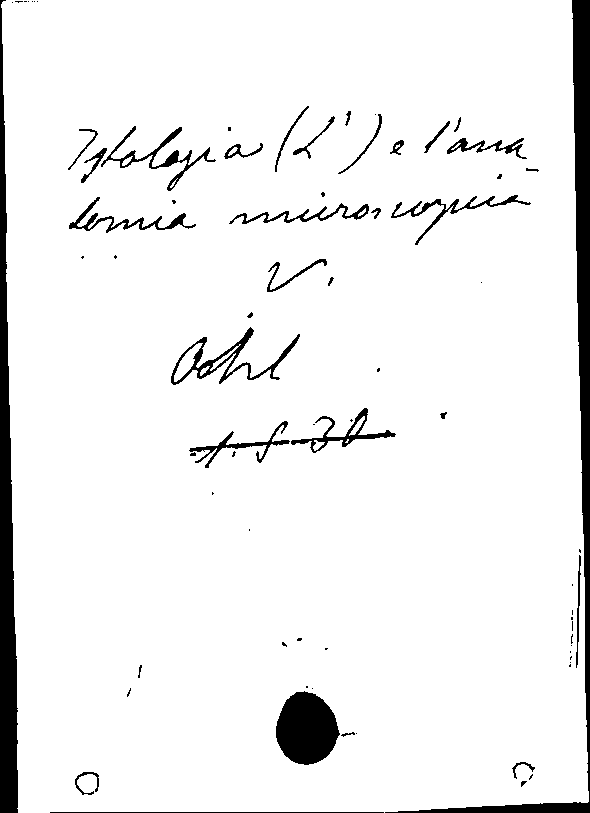 Istologia (L') e l'ana-
tomia microscopica
V.
Oehl